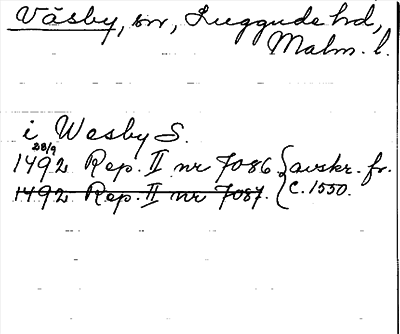 Väsby, sn, Luggude hd,
Malm. l.
i Wesby S.
28/9
1492 Rep. II nr 7086. avskr. fr.
1492 Rep. II nr 7087. c. 1550.